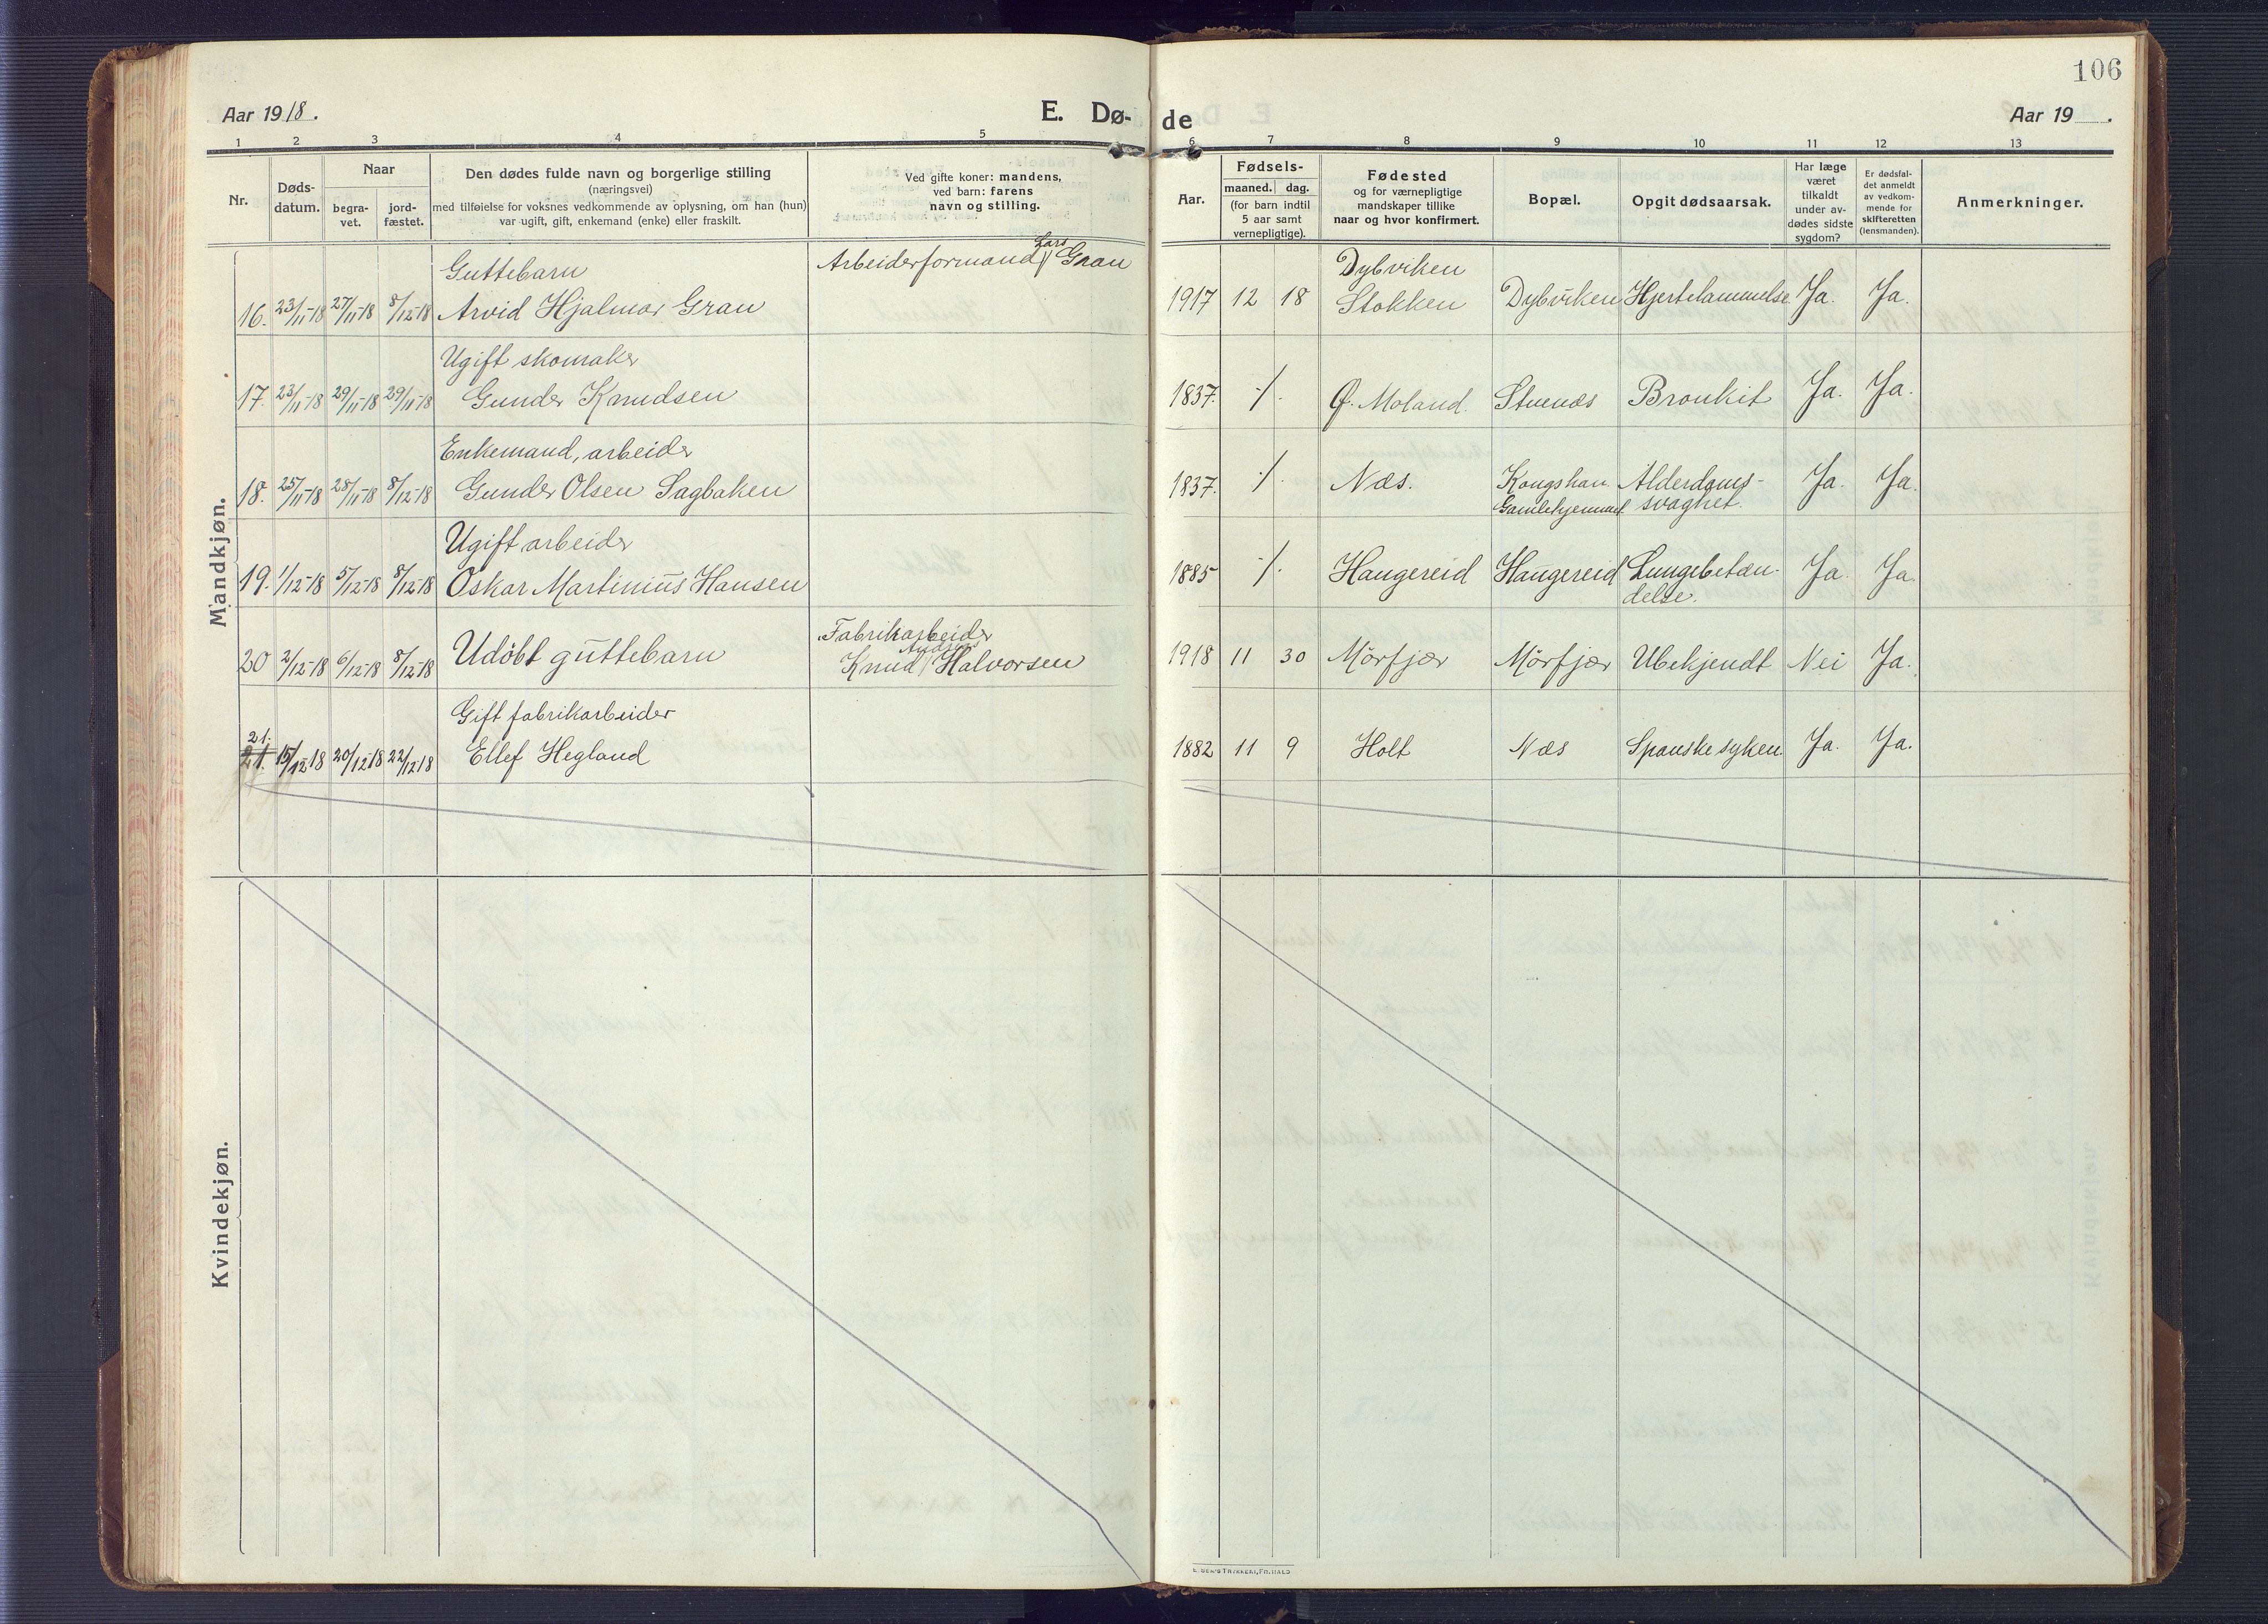 106
Aar 1918.
E. Dø-
de
Aar 19 .
1 2 3 4 5
6 7 8 9 10 11 12 13
Nr.
Døds-
datum.
Naar
begra-
vet.
jord-
fæstet.
Den dødes fulde navn og borgerlige stilling
(næringsvei)
med tilføielse for voksnes vedkommende av oplysning, om han (hun)
var ugift, gift, enkemand (enke) eller fraskilt.
Ved gifte koner: mandens,
ved barn: farens
navn og stilling.
Aar.
Fødsels-
maaned. dag.
(for barn indtil
5 aar samt
vernepligtige).
Fødested
og for værnepligtige
mandskaper tillike
naar og hvor konfirmert.
Bopæl.
Opgit dødsaarsak.
Har læge
været
tilkaldt
under av-
dødes sidste
sygdom?
Er dødsfal-
det anmeldt
av vedkom-
mende for
skifteretten
(lensmanden).
Anmerkninger.
Mandkjøn.
Guttebarn
Arbeiderformand Lars Gran
Dybviken
16. 23/11-18 27/11-18 8/12-18 Arvid Hjalmar Gran
1917 12 18 Stokken Dybviken Hjertelammelse Ja. Ja.
Ugift skomaker
17. 23/11-18 29/11-18 29/11-18 Gunder Knudsen
1837. ./. Ø. Moland. Stuenæs Bronkit Ja. Ja.
Enkemand, arbeider
18. 25/11-18 28/11-18 8/12-18 Gunder Olsen Sagbakken
1837. ./. Næs. Kongshan Alderdoms- Ja. Ja.
Gamlehjemmet svaghet.
Ugift arbeider
19. 1/12-18 5/12-18 8/12-18 Oskar Martinius Hansen
1885 ./. Haugereid Haugereid Lungebetæn- Ja. Ja.
delse.
Fabrikarbeider
20 2/12-18 6/12-18 8/12-18 Udöbt guttebarn Knud Anders Halvorsen
1918 11 30 Mörfjær Mörfjær Ubekjendt Nei Ja.
Gift fabrikarbeider
21.
21. 15/12-18 20/12-18 22/12-18 Ellef Hegland
1882 11 9 Holt Næs Spanske syken Ja. Ja.
Kvindekjøn.